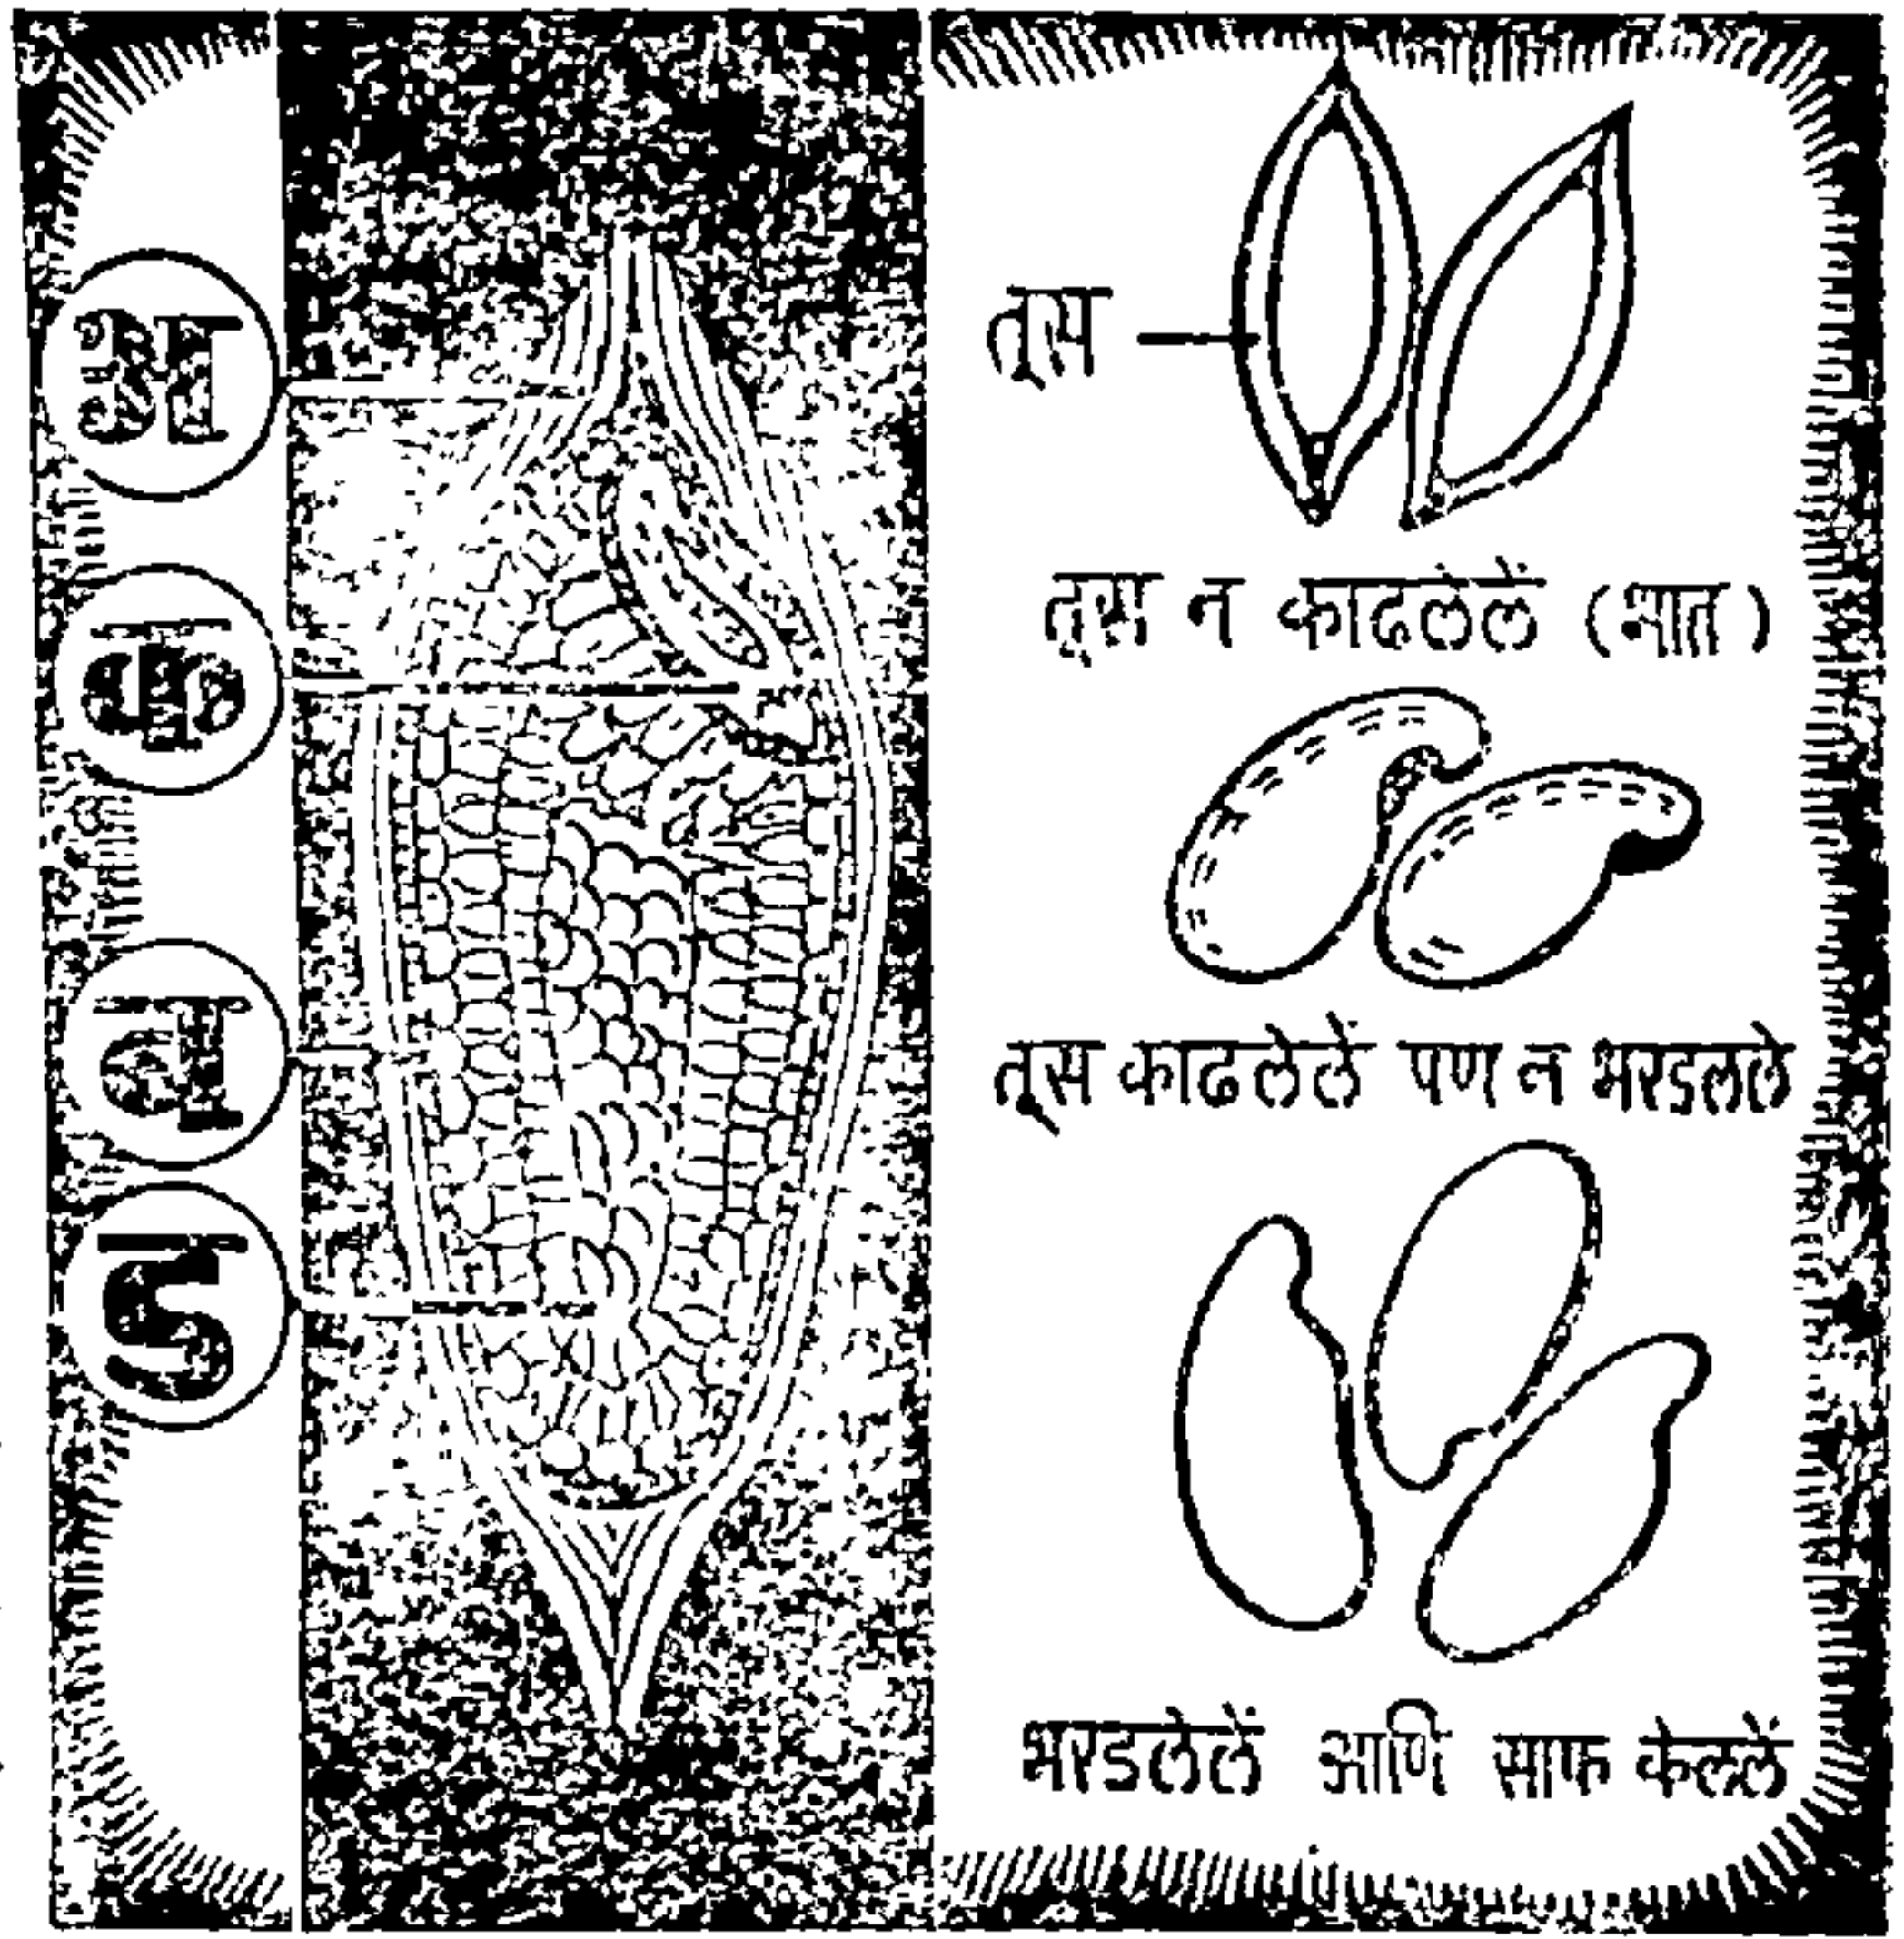 अ
क
ब
ड
तूस
तूस न काढलेलें (भात)
तूस काढलेलें पण न भरडलले
भरडलेलें आणि साफ केललें